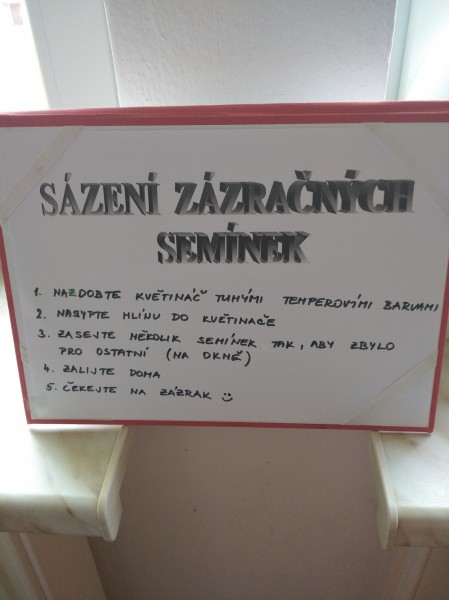 SÁZENÍ ZÁZRAČNÝCH
SEMÍNEK
1. NAZDOBTE KVĚTINÁČ TUHÝMI TEMPEROVÍMI BARVAMI
2. NASYPTE HLÍNU DO KVĚTINAČE
3. ZASEJTE NĚKOLIK SEMÍNEK TAK, ABY ZBYLO
PRO OSTATNÍ (NA OKNĚ)
4. ZALIJTE DOMA
5. ČEKEJTE NA ZÁZRAK ☺